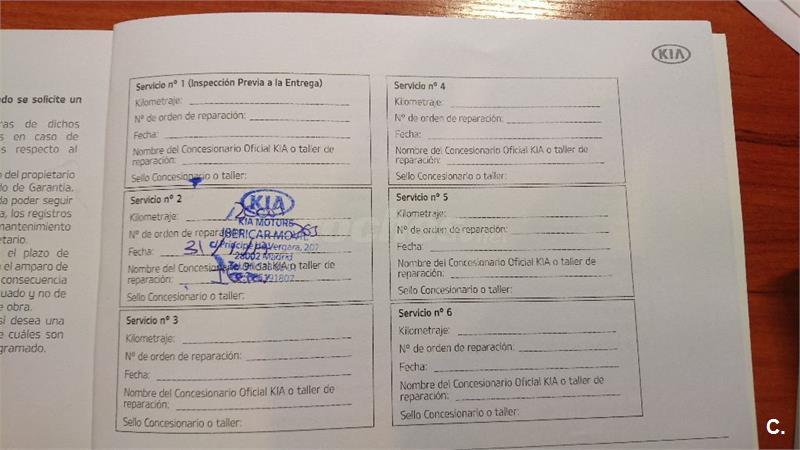 KIA
do se solicite un
ras de dichos
s en caso de
os respecto al
o del propietario
do de Garantía.
da poder seguir
a, los registros
mantenimiento
etario.
el plazo de
n el amparo de
consecuencia
uado y no de
e obra.
si desea una
e cuáles son
gramado.
Servicio nº 1 (Inspección Previa a la Entrega)
Kilometraje:
Nº de orden de reparación:
Fecha:
Nombre del Concesionario Oficial KIA o taller de
reparación:
Sello Concesionario o taller:
Servicio nº 2
Kilometraje:
Nº de orden de reparación:
Fecha: 31
Nombre del Concesionario Oficial KIA o taller de
reparación:
Sello Concesionario o taller:
KIA
KIA MOTORS
IBERICAR MOVIL
Príncipe de Vergara, 207
28002 Madrid
Servicio nº 3
Kilometraje:
Nº de orden de reparación:
Fecha:
Nombre del Concesionario Oficial KIA o taller de
reparación:
Sello Concesionario o taller:
Servicio nº 4
Kilometraje:
Nº de orden de reparación:
Fecha:
Nombre del Concesionario Oficial KIA o taller de
reparación:
Sello Concesionario o taller:
Servicio nº 5
Kilometraje:
Nº de orden de reparación:
Fecha:
Nombre del Concesionario Oficial KIA o taller de
reparación:
Sello Concesionario o taller:
Servicio nº 6
Kilometraje:
Nº de orden de reparación:
Fecha:
Nombre del Concesionario Oficial KIA o taller de
reparación:
Sello Concesionario o taller:
C.